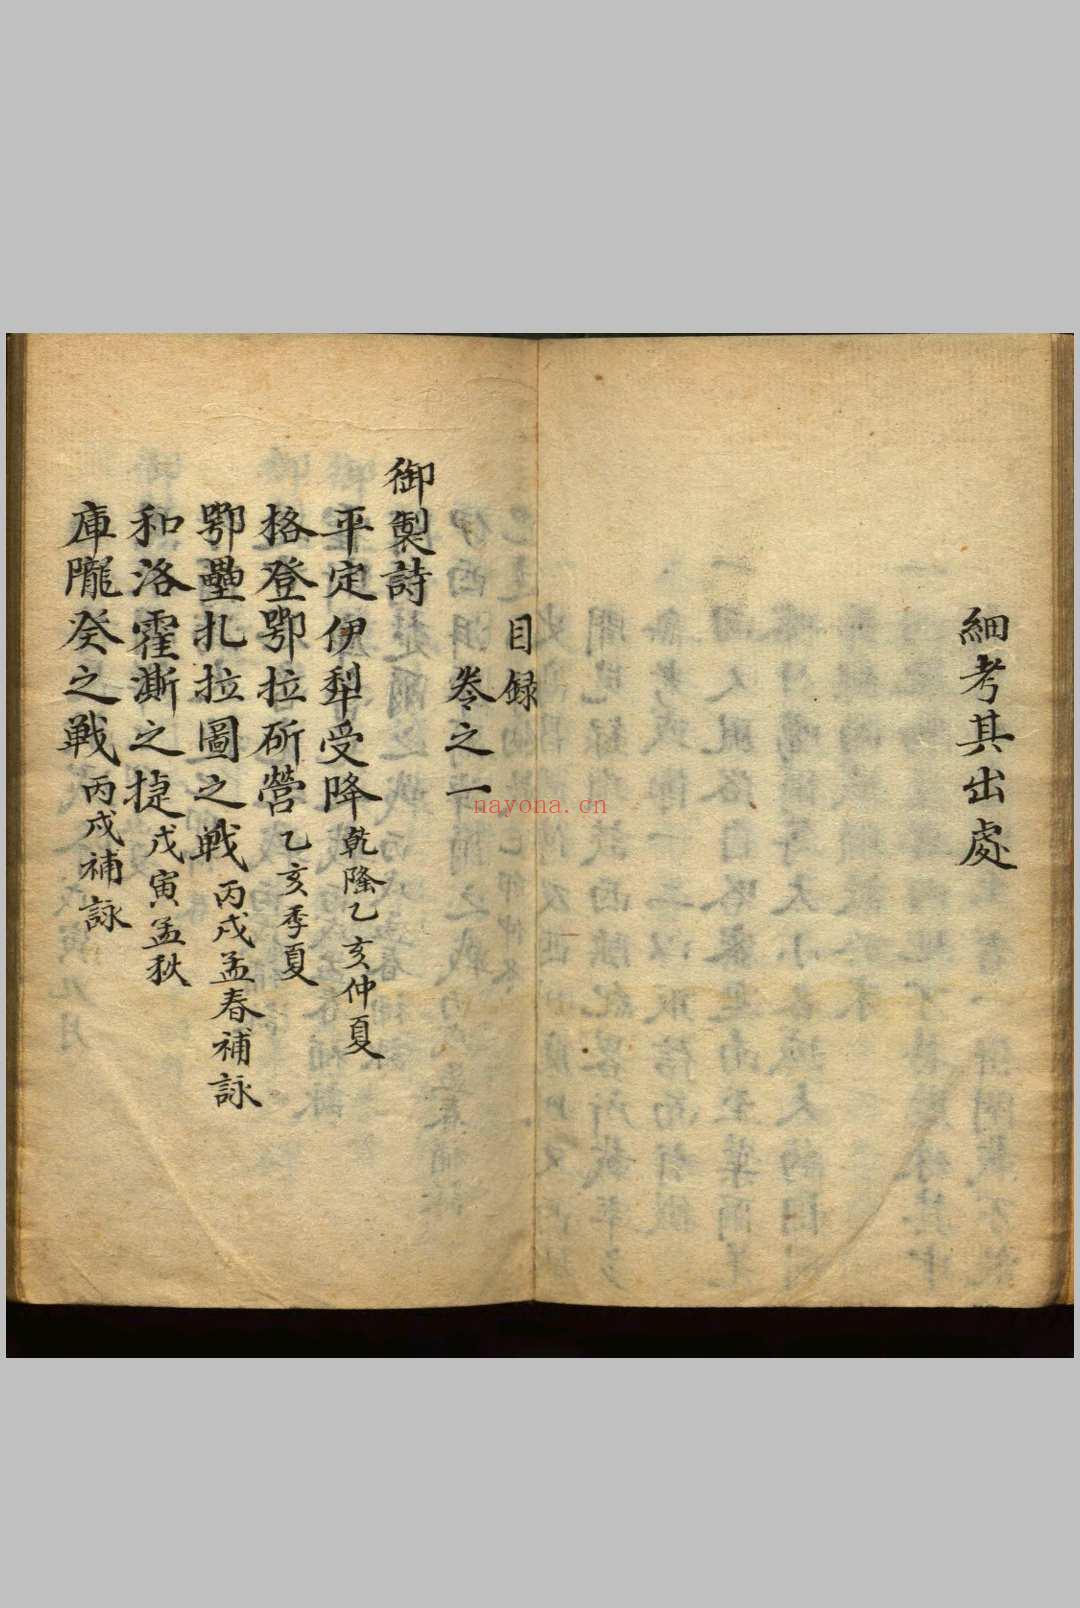 細考其出處
目録
卷之一
御製詩
平定伊犁受降乾隆乙亥仲夏
格登鄂拉斫營乙亥季夏
鄂壘扎拉圖之戰丙戌孟春補詠
和洛霍澌之捷戊寅孟秋
庫隴癸之戰丙戌補詠
nayona.cn